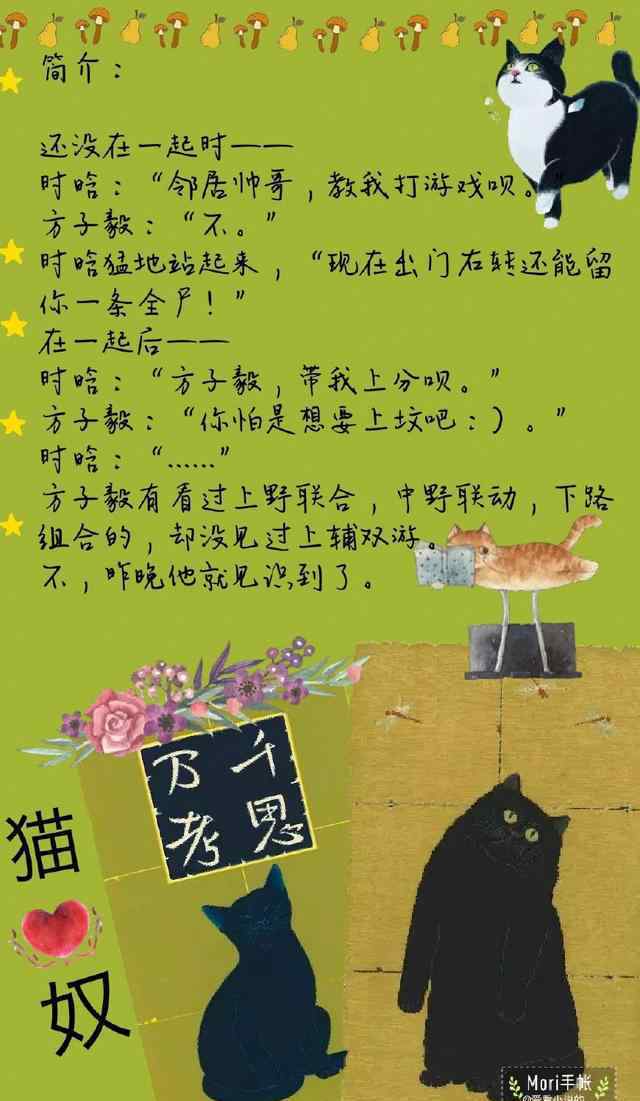 简介：
还没在一起时——
时晗：“邻居帅哥，教我打游戏呗。”
方子毅：“不。”
时晗猛地站起来，“现在出门右转还能留
你一条全尸！”
在一起后——
时晗：“方子毅，带我上分呗。”
方子毅：“你怕是想要上坟吧：）。”
时晗：“……”
方子毅有看过上野联合，中野联动，下路
组合的，却没见过上辅双游。
不，昨晚他就见识到了。
万千
考思
猫
奴
Mori手帐
@爱看小说的